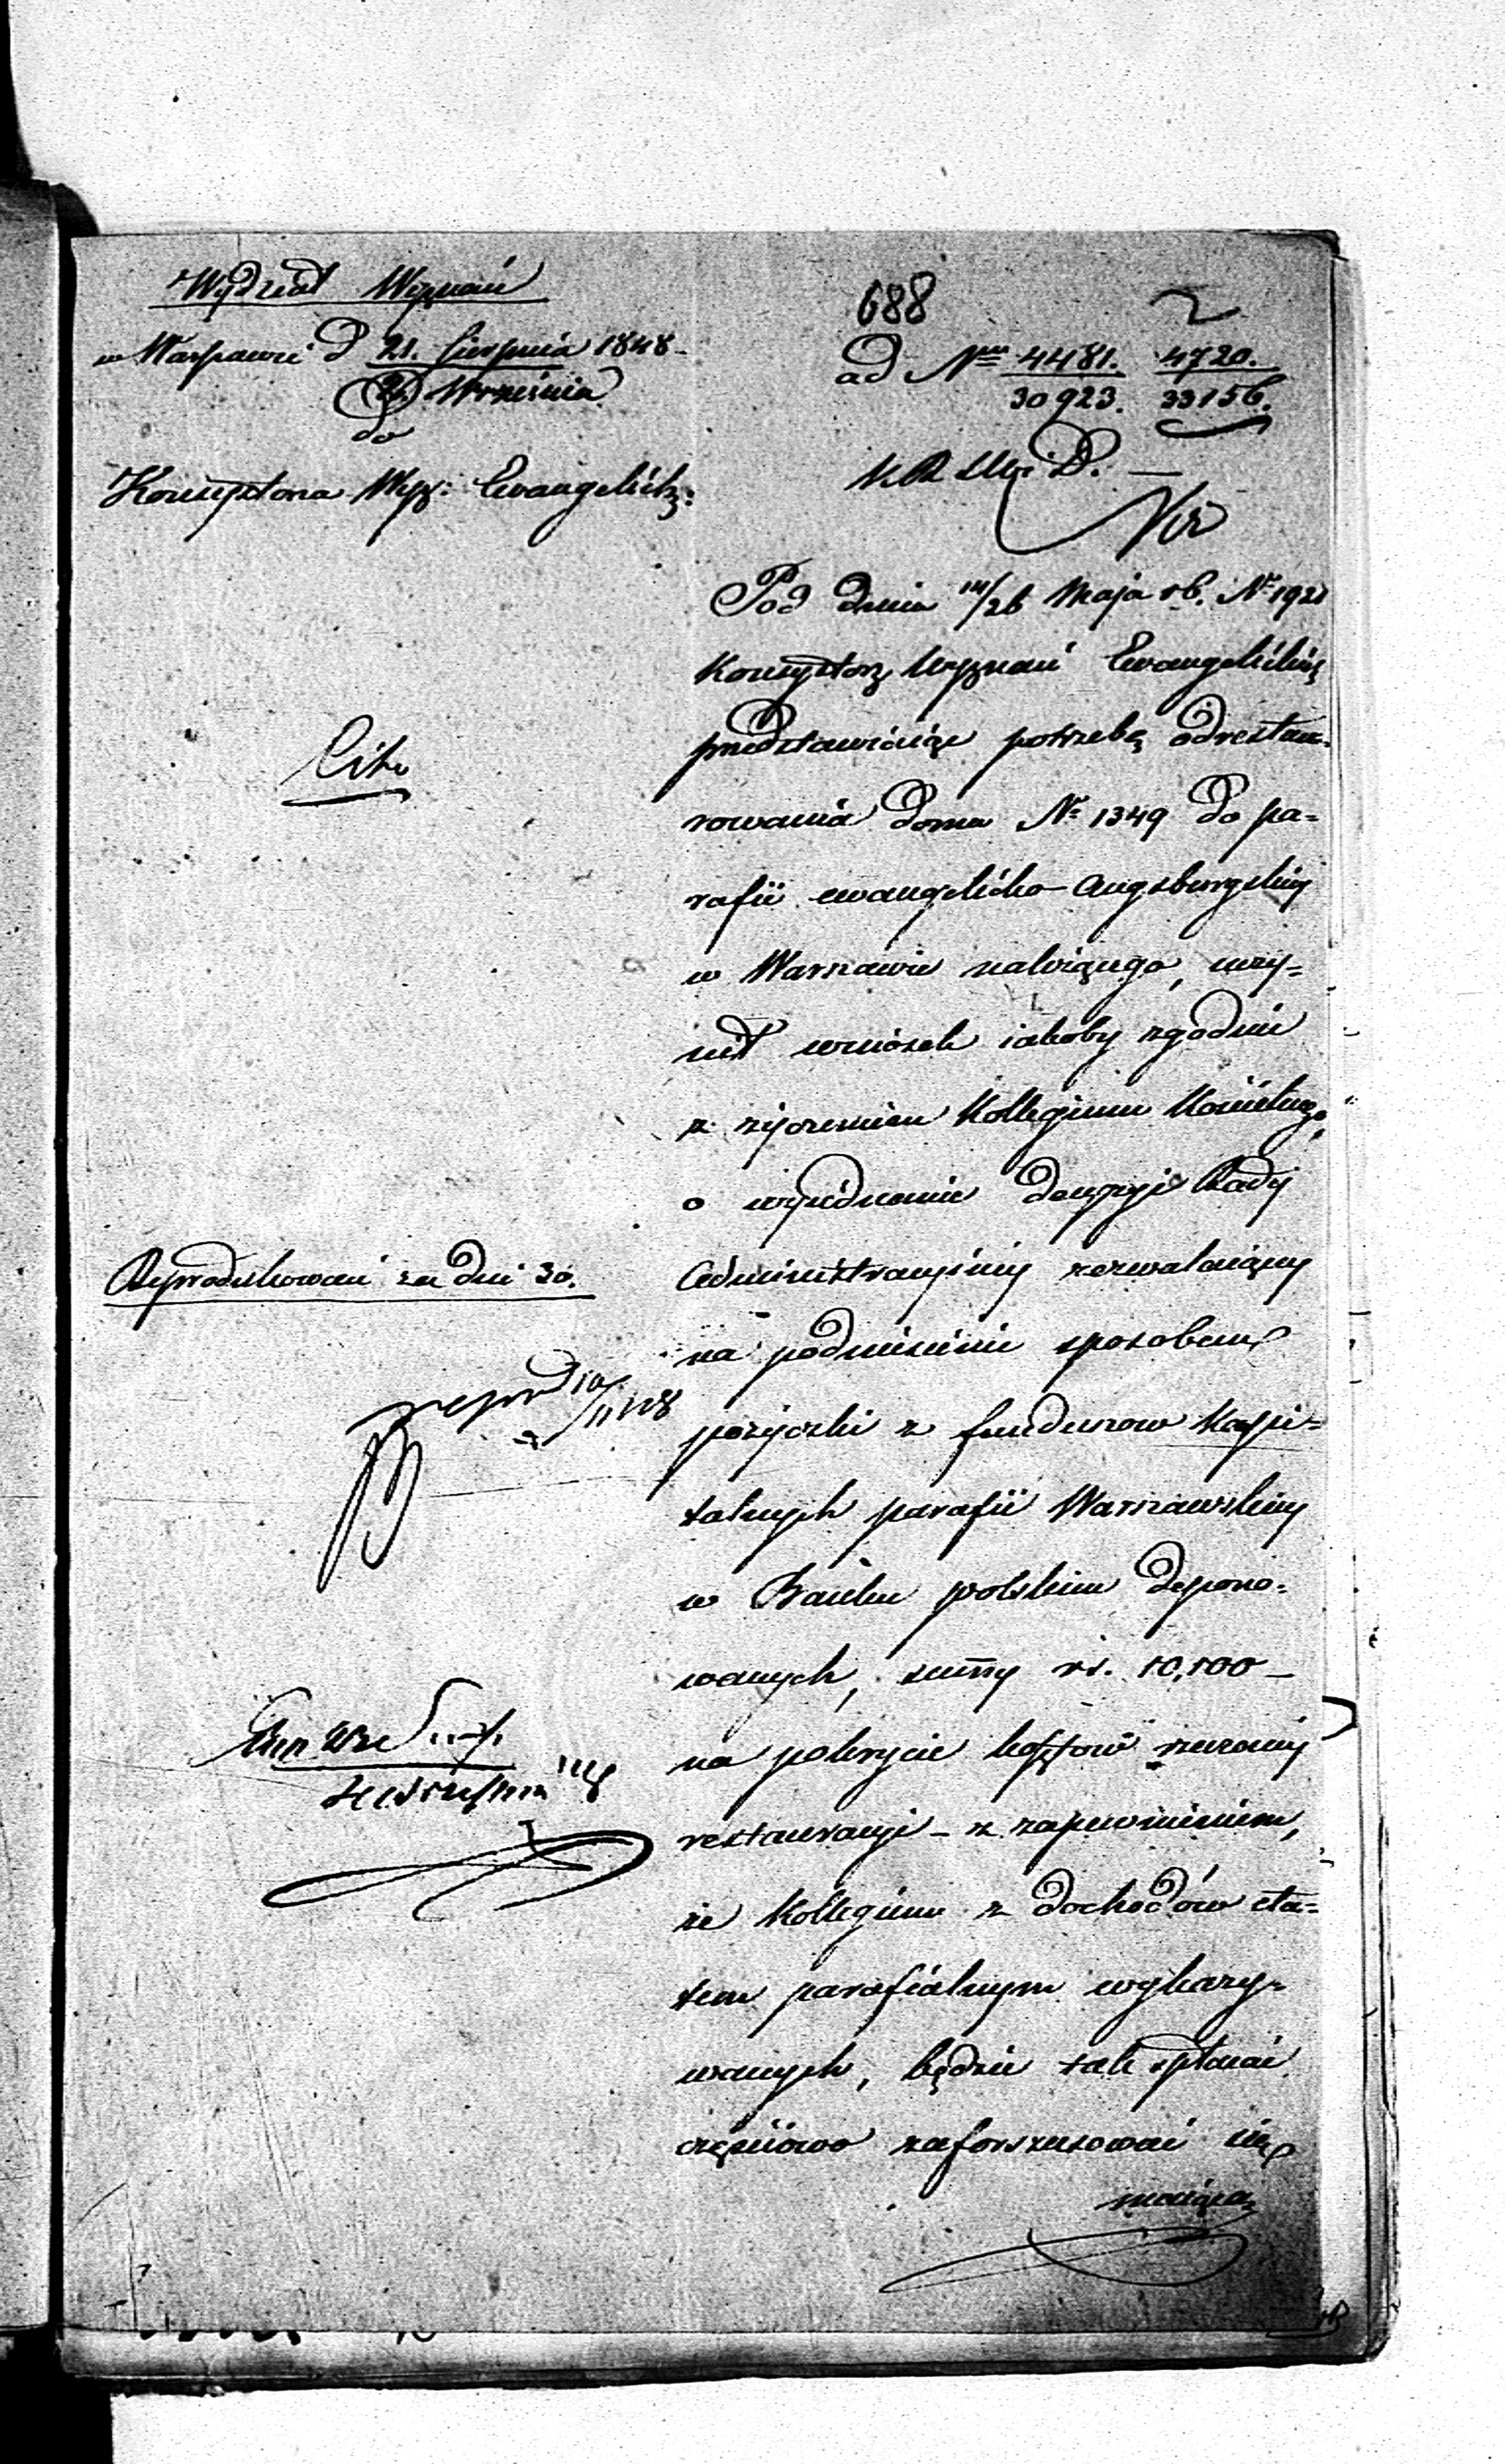 Wydział Wyznań
w Warszawie d 21. Sierpnia 1848
2. Września
do
Konsystorza Wyz: Ewangelick:
688
2
ad Nrm 4481. 4720.
30923. 33156.
K R S W i D.
Cito
Pod dniem 14/26 Maja rb. N 192
Konsystorz Wyznań Ewangelickich
przedstawiaiąc potrzebę odrestau-
rowania domu N 1349 do pa-
rafii ewangelicko-Augsburgskiey
w Warszawie należącego, uczy-
nił wniosek iakoby zgodnie
z życzeniem Kollegium Kościelnego,
o wyiednanie decyzyi Rady
Administracyiney zezwalaiącey
na podniesienie sposobem
pożyczki z funduszow Kapi-
talnych parafii Warszawskiey
w Banku polskim depono-
wanych, summy rs. 10,100 -
na pokrycie kosztów rzeczoney
restauracyi - z zapewnieniem,
że Kollegium z dochodów eta-
tem parafialnym wykazy-
wanych, będzie tak spłacać
częściowo zaforszusować się
maiącą
Reprodukować za dni 30.